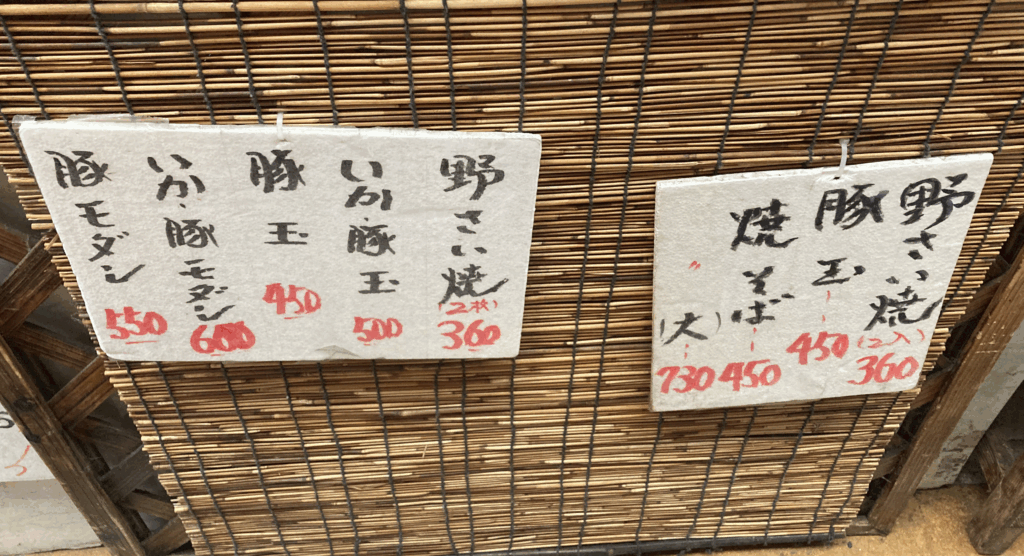 野さい焼
(2枚)
360
いか・豚玉
500
豚玉
450
いか・豚モダン
600
豚モダン
550
野さい焼
(2入)
360
豚玉
450
焼そば
450
〃
(大)
730